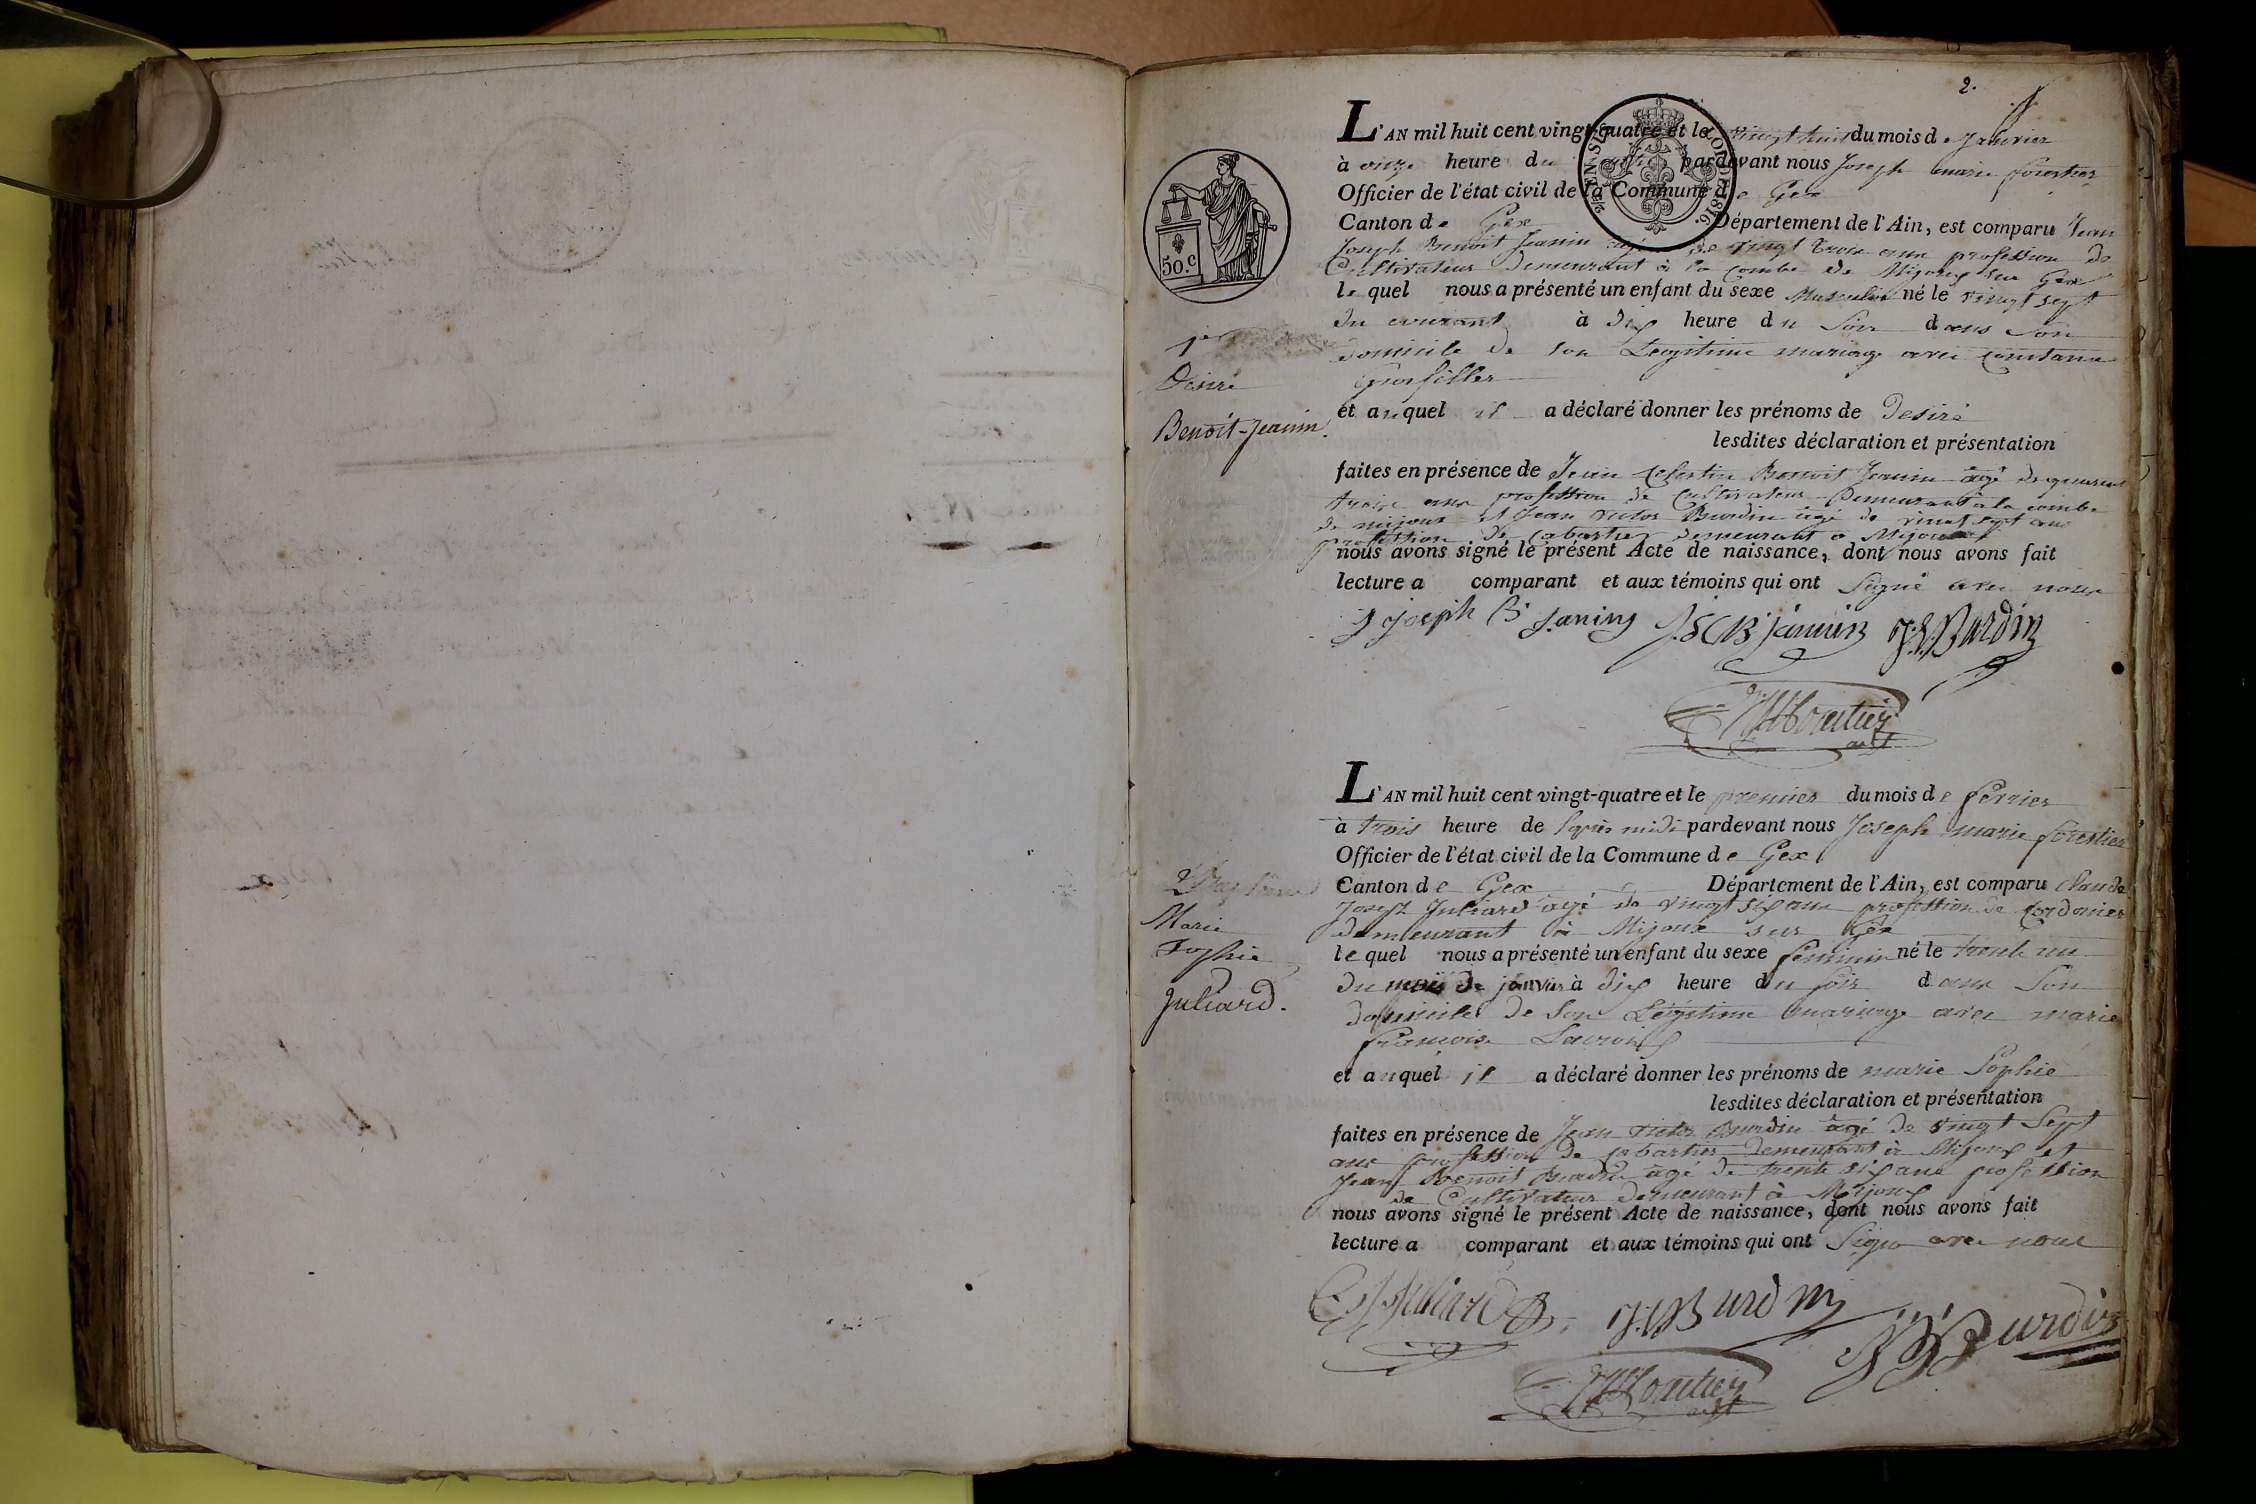 2.
L'AN mil huit cent vingt-quatre et le vingt huit du mois de Janvier
à onze heure du pardevant nous Joseph marie forestier
Officier de l'état civil de la Commune de Gex
Canton de Gex Département de l'Ain, est comparu Jean
Joseph Benoit Jeanin agé de vingt trois ans profession de
Cultivateur Demeurant à la combe de Mijoux sur Gex
le quel nous a présenté un enfant du sexe Masculin né le vingt sept
du courant à dix heure du soir dans son
domicile de son Legitime mariage avec Constance
et auquel il a déclaré donner les prénoms de Desiré
lesdites déclaration et présentation
faites en présence de Jean Celestin Benoit Jeanin agé de quarante
trois ans profession de Cultivateur Demeurant à la combe
de mijoux et Jean Victor Burdin agé de vingt sept ans
profession de cabartier demeurant a Mijoux
nous avons signé le présent Acte de naissance, dont nous avons fait
lecture a comparant et aux témoins qui ont Signé avec nous
50.c
1er
Desiré
Benoit-Jeanin.
J Joseph B. Janin J.SCB janin J.V.Burdin
L'AN mil huit cent vingt-quatre et le premier du mois de fevrier
à trois heure de l'après midi pardevant nous Joseph marie forestier
Officier de l'état civil de la Commune de Gex
Canton de Gex Département de l'Ain, est comparu Claude
Joseph Juliard agé de vingt six ans profession de Cordonier
demeurant à Mijoux sur Gex
le quel nous a présenté un enfant du sexe feminin né le trente un
du mois de janvier à dix heure du soir dans son
domicile de son Legitime mariage avec marie
françoise Lacroix
et auquel il a déclaré donner les prénoms de marie Sophie
lesdites déclaration et présentation
faites en présence de Jean Victor Burdin agé de vingt Sept
ans profession de cabartier demeurant à Mijoux et
Jean Benoit Burdin agé de trente six ans profession
de Cultivateur demeurant à Mijoux
nous avons signé le présent Acte de naissance, dont nous avons fait
lecture a comparant et aux témoins qui ont Signé avec nous
2
Marie
Sophie
Juliard.
C J Juliard J.V.Burdin
J B Burdin